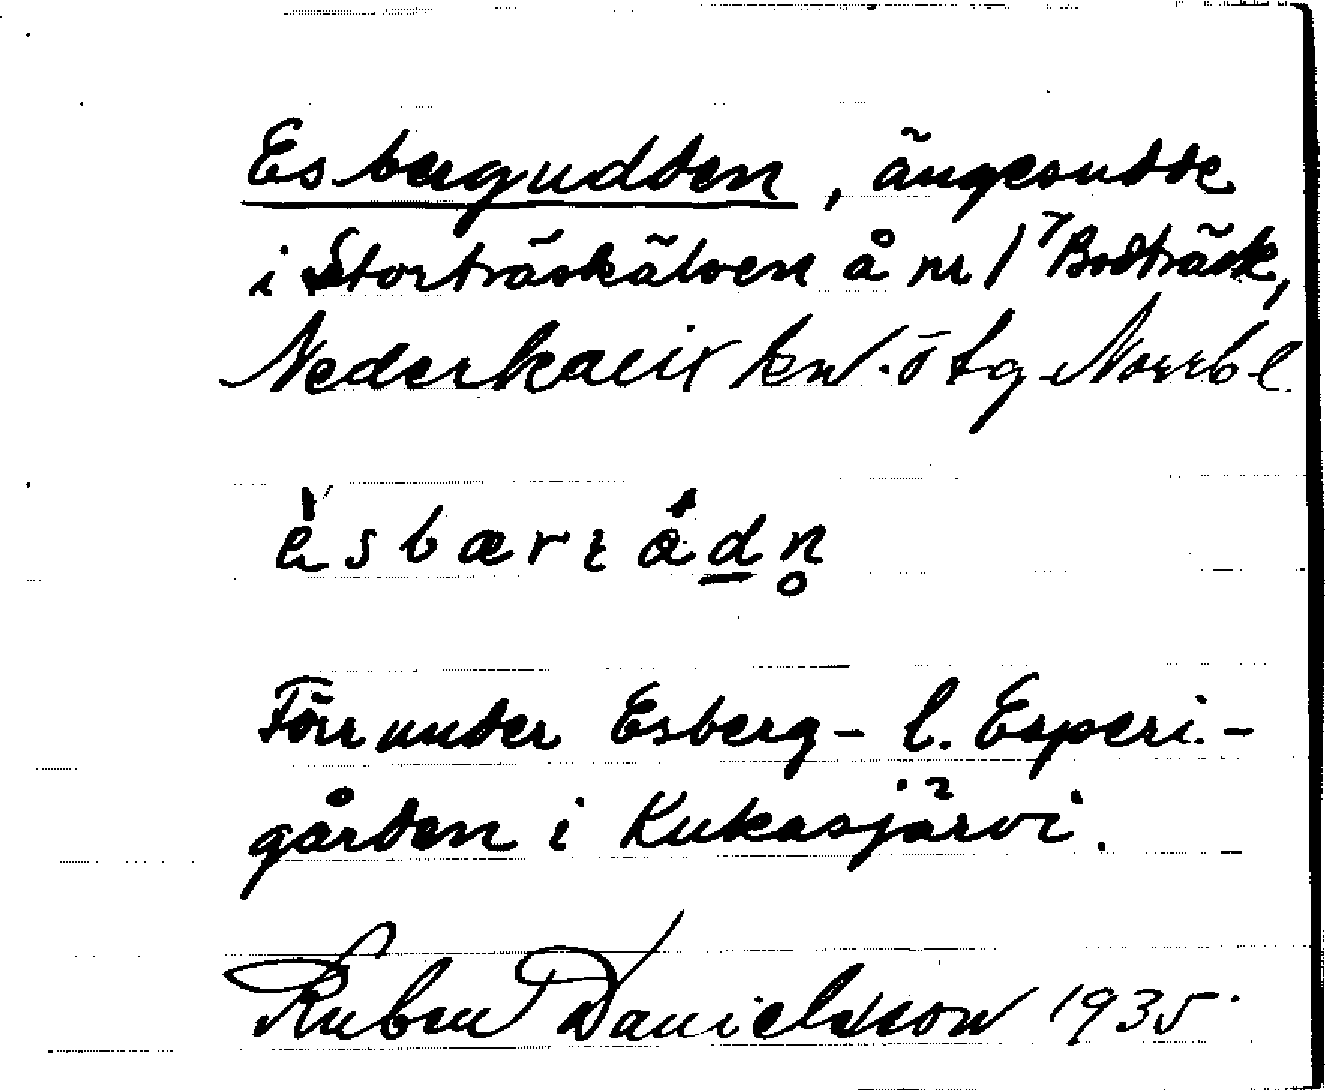 Esbergudden, ängesudde
i Storträskälven å nr 1⁷ Bodträsk,
Nederkalix sn. ö tg Norrb l.
èsbærɪåd̲n̥
Förr under Esberg- l. Esperi-
gården i Kukasjärvi.
Ruben Danielsson 1935.